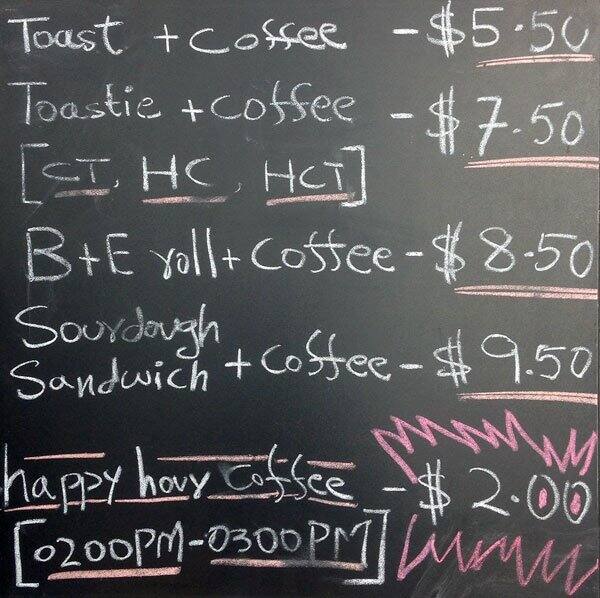 Toast + coffee - $5.50
Toastie + coffee - $7.50
[CT, HC, HCT]
B+E roll + coffee - $8.50
Sourdough
Sandwich + coffee - $9.50
happy hour coffee - $2.00
[0200PM-0300PM]